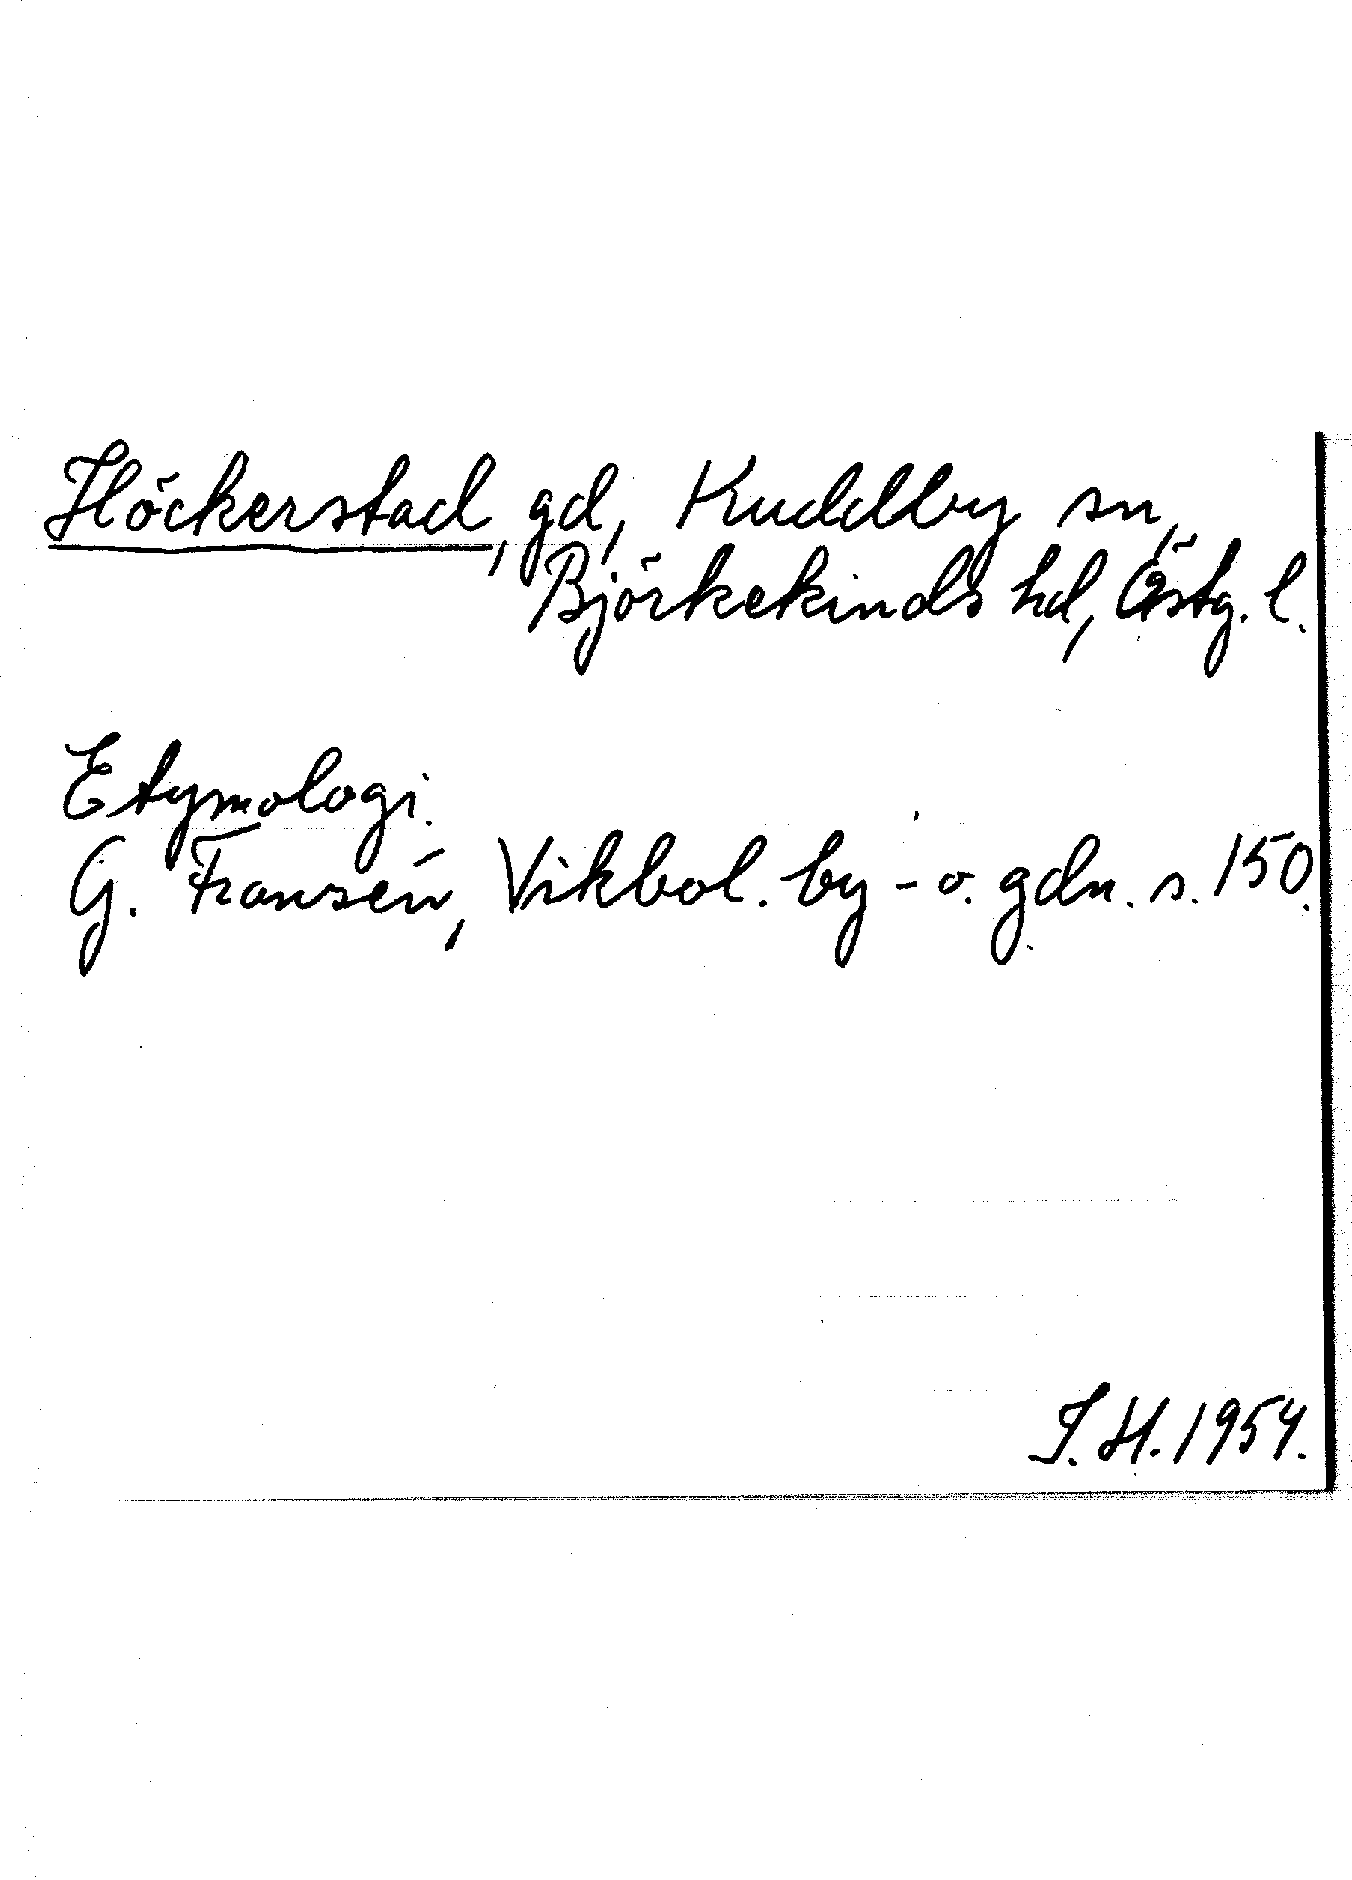 Höckerstad, gd, Kuddby sn,
Björkekinds hd, Östg. l.
Etymologi.
G. Fransén, Vikbol. by- o. gdn. s. 150.
I. H. 1954.